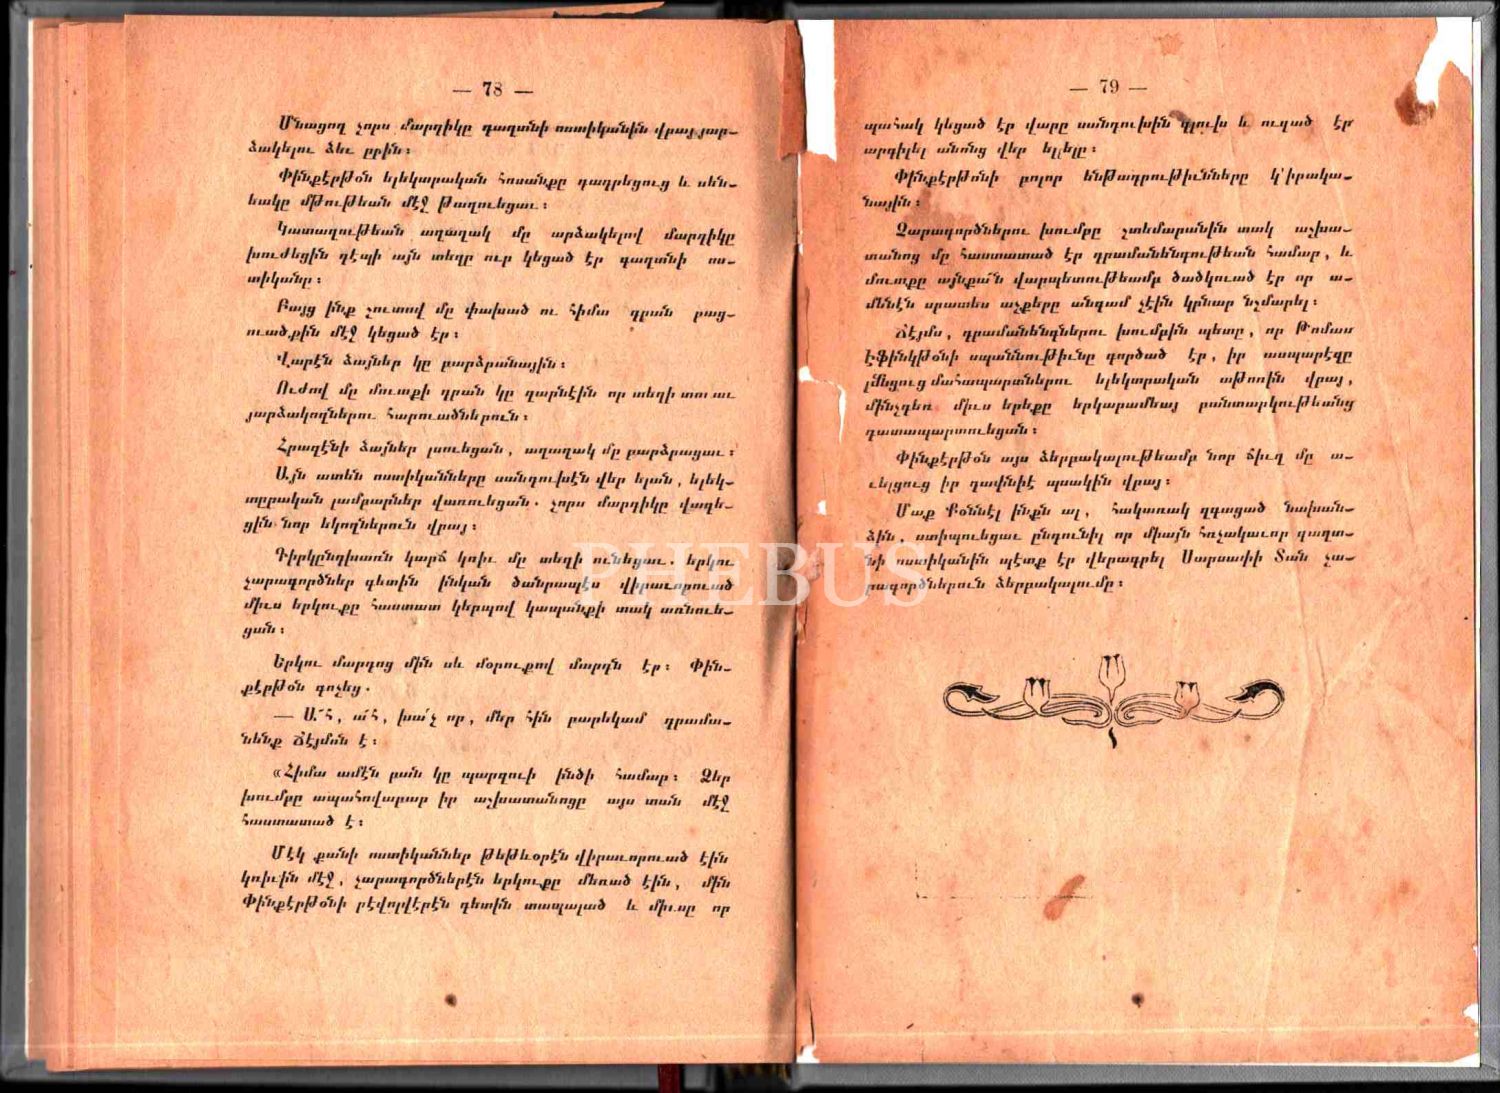 — 78 —
Մնացող չորս մարդիկը գաղտնի ոստիկանին վրայ յար-
ձակելու ձեւ ըրին։
Փինքէրթօն ելեկտրական հոսանքը դադրեցուց և սեն-
եակը մթութեան մէջ թաղուեցաւ։
Կատաղութեան աղաղակ մը արձակելով մարդիկը
խուժեցին դէպի այն տեղը ուր կեցած էր գաղտնի ոս-
տիկանը։
Բայց ինք չուտով մը փախած ու հիմա դրան բաց-
ուածքին մէջ կեցած էր։
Վարէն ձայներ կը բարձրանային։
Ուժով մը մուտքի դրան կը զարնէին որ տեղի տուաւ
յարձակողներու հարուածներուն։
Հրազէնի ձայներ լսուեցան, աղաղակ մը բարձրացաւ։
Այն ատեն ոստիկանները սանդուխէն վեր ելան, ելեկ-
տըրական լամբարներ վառուեցան. չորս մարդիկը վազե-
ցին նոր եկողներուն վրայ։
Գիրկընդխառն կարճ կռիւ մը տեղի ունեցաւ. երկու
չարագործներ գետին ինկան ծանրապէս վիրաւորուած
միւս երկուքը հաստատ կերպով կապանքի տակ առնուե-
ցան։
Երկու մարդոց մին սև մօրուքով մարդն էր։ Փին-
քէրթօն գոչեց.
— Ա՜հ, ա՜հ, խա՛չ որ, մեր հին բարեկամ դրամա-
նենք Ճէյմսն է։
«Հիմա ամէն բան կը պարզուի ինծի համար։ Ձեր
խումբը ապահովաբար իր աշխատանոցը այս տան մէջ
հաստատած է։
Մէկ քանի ոստիկաններ թեթևօրէն վիրաւորուած էին
կռիւին մէջ, չարագործներէն երկուքը մեռած էին, մին
Փինքէրթօնի րէվոլվէրէն գետին տապալած և միւսը որ
— 79 —
պահակ կեցած էր վարը սանդուխին գլուխ և ուզած էր
արգիլել անոնց վեր ելլելը։
Փինքէրթօնի բոլոր ենթադրութիւնները կ'իրակա-
նային։
Չարագործներու խումբը շտեմարանին տակ աշխա-
տանոց մը հաստատած էր դրամանենգութեան համար, և
մուտքը այնքա՜ն վարպետութեամբ ծածկուած էր որ ա-
մենէն սրատես աչքերը անգամ չէին կրնար նշմարել։
Ճէյմս, դրամանենգներու խումբին պետը, որ Թոմաս
Էֆինկթօնի սպաննութիւնը գործած էր, իր ասպարէզը
լմնցուց մահապարտներու ելեկտրական աթոռին վրայ,
մինչդեռ միւս երեքը երկարամեայ բանտարկութեանց
դատապարտուեցան։
Փինքէրթօն այս ձերբակալութեամբ նոր ճիւղ մը ա-
ւելցուց իր դափնիէ պսակին վրայ։
Մաք Քօննէլ ինքն ալ, հակառակ զգացած նախան-
ձին, ստիպուեցաւ ընդունիլ որ միայն հռչակաւոր գաղտ-
նի ոստիկանին պէտք էր վերագրել Սարսափի Տան չա-
րագործներուն ձերբակալումը։
PHEBUS